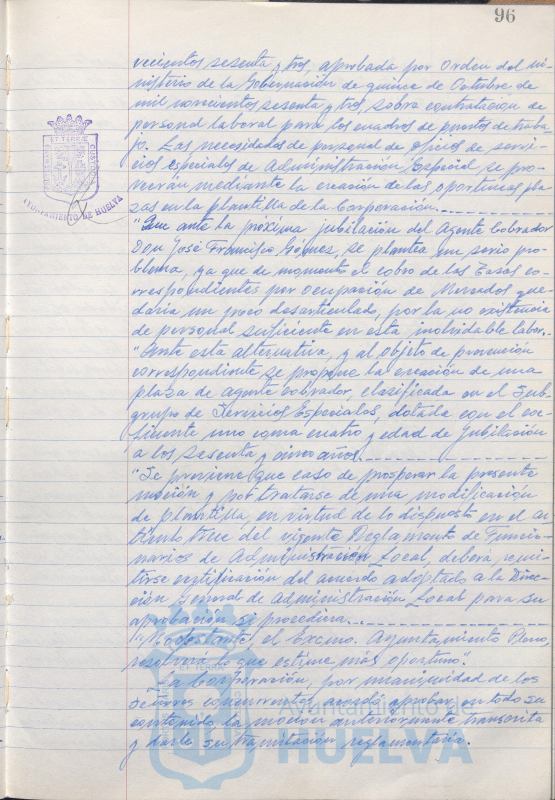 96
vecientos sesenta y tres, aprobada por Orden del mi-
nisterio de la Gobernación de quince de Octubre de
mil novecientos sesenta y tres sobre contratación de
personal laboral para los cuadros de puestos de traba-
jo. Las necesidades de personal de oficios de servi-
cios especiales de Administración Especial se pro-
veerán mediante la creación de las oportunas pla-
zas en la plantilla de la Corporación.
"Que ante la próxima jubilación del Agente Cobrador
Don José Francisco Gómez, se plantea un serio pro-
blema, ya que de momento el cobro de las Tasas co-
rrespondientes por ocupación de Mercados que-
daría un poco desarticulado, por la no existencia
de personal suficiente en esta inolvidable labor.-
"Ante esta alternativa, y al objeto de prevención
correspondiente, se propone la creación de una
plaza de agente cobrador, clasificada en el Sub-
grupo de Servicios Especiales, dotada con el coe-
ficiente uno coma cuatro y edad de jubilación
a los sesenta y cinco años.
"Se previene que caso de prosperar la presente
moción y por tratarse de una modificación
de plantilla, en virtud de lo dispuesto en el ar-
tículo trece del vigente Reglamento de Funcio-
narios de Administración Local, deberá remi-
tirse certificación del acuerdo adoptado a la Direc-
ción General de Administración Local para su
aprobación si procediera.
"No obstante el Excmo. Ayuntamiento Pleno,
resolverá lo que estime más oportuno".
La Corporación, por unanimidad de los
señores concurrentes acordó aprobar en todo su
contenido la moción anteriormente transcrita
y darle su tramitación reglamentaria.
AYUNTAMIENTO DE HUELVA
Ayuntamiento de
HUELVA